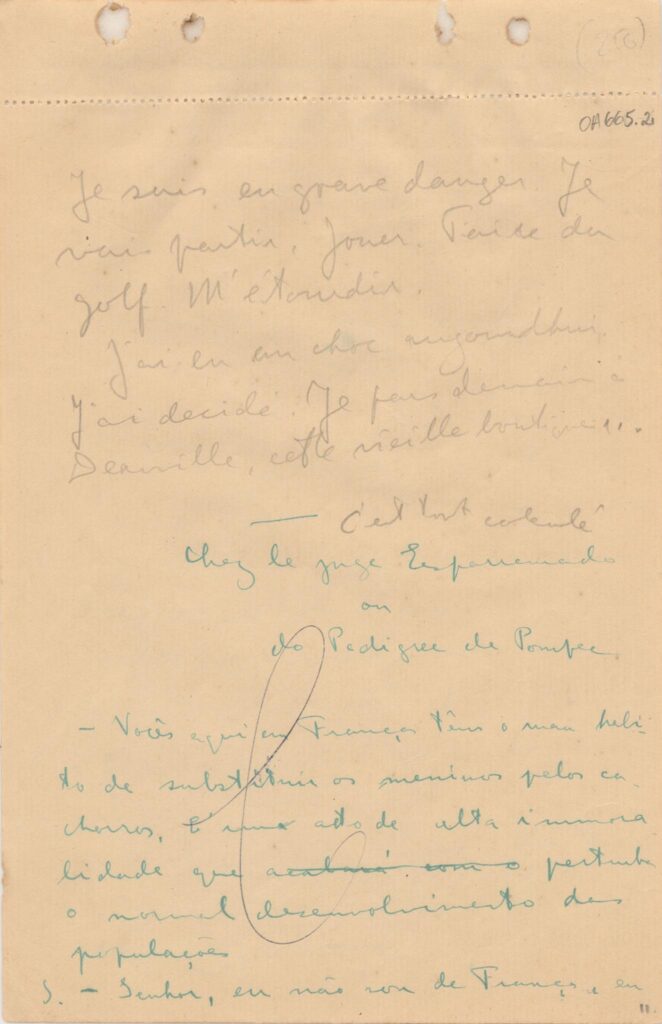 (256)
OA665.2
Je suis en grave danger. Je
vais partir. Jouer. Faire du
golf. M'étourdir.
J'ai eu un choc aujourdhui.
J'ai decidé. Je pars demain à
Deauville, cette vieille boutique...
— C'est tout
Chez le juge Esparramado
ou
do Pedigree de Pompée
— Vocês aqui en França têm o mau habi-
to de substituir os meninos pelos ca-
chorros. É um acto de alta immora
lidade que acabará com o perturba
o normal desenvolvimento das
populações
S. — Senhor, eu não sou de França, eu